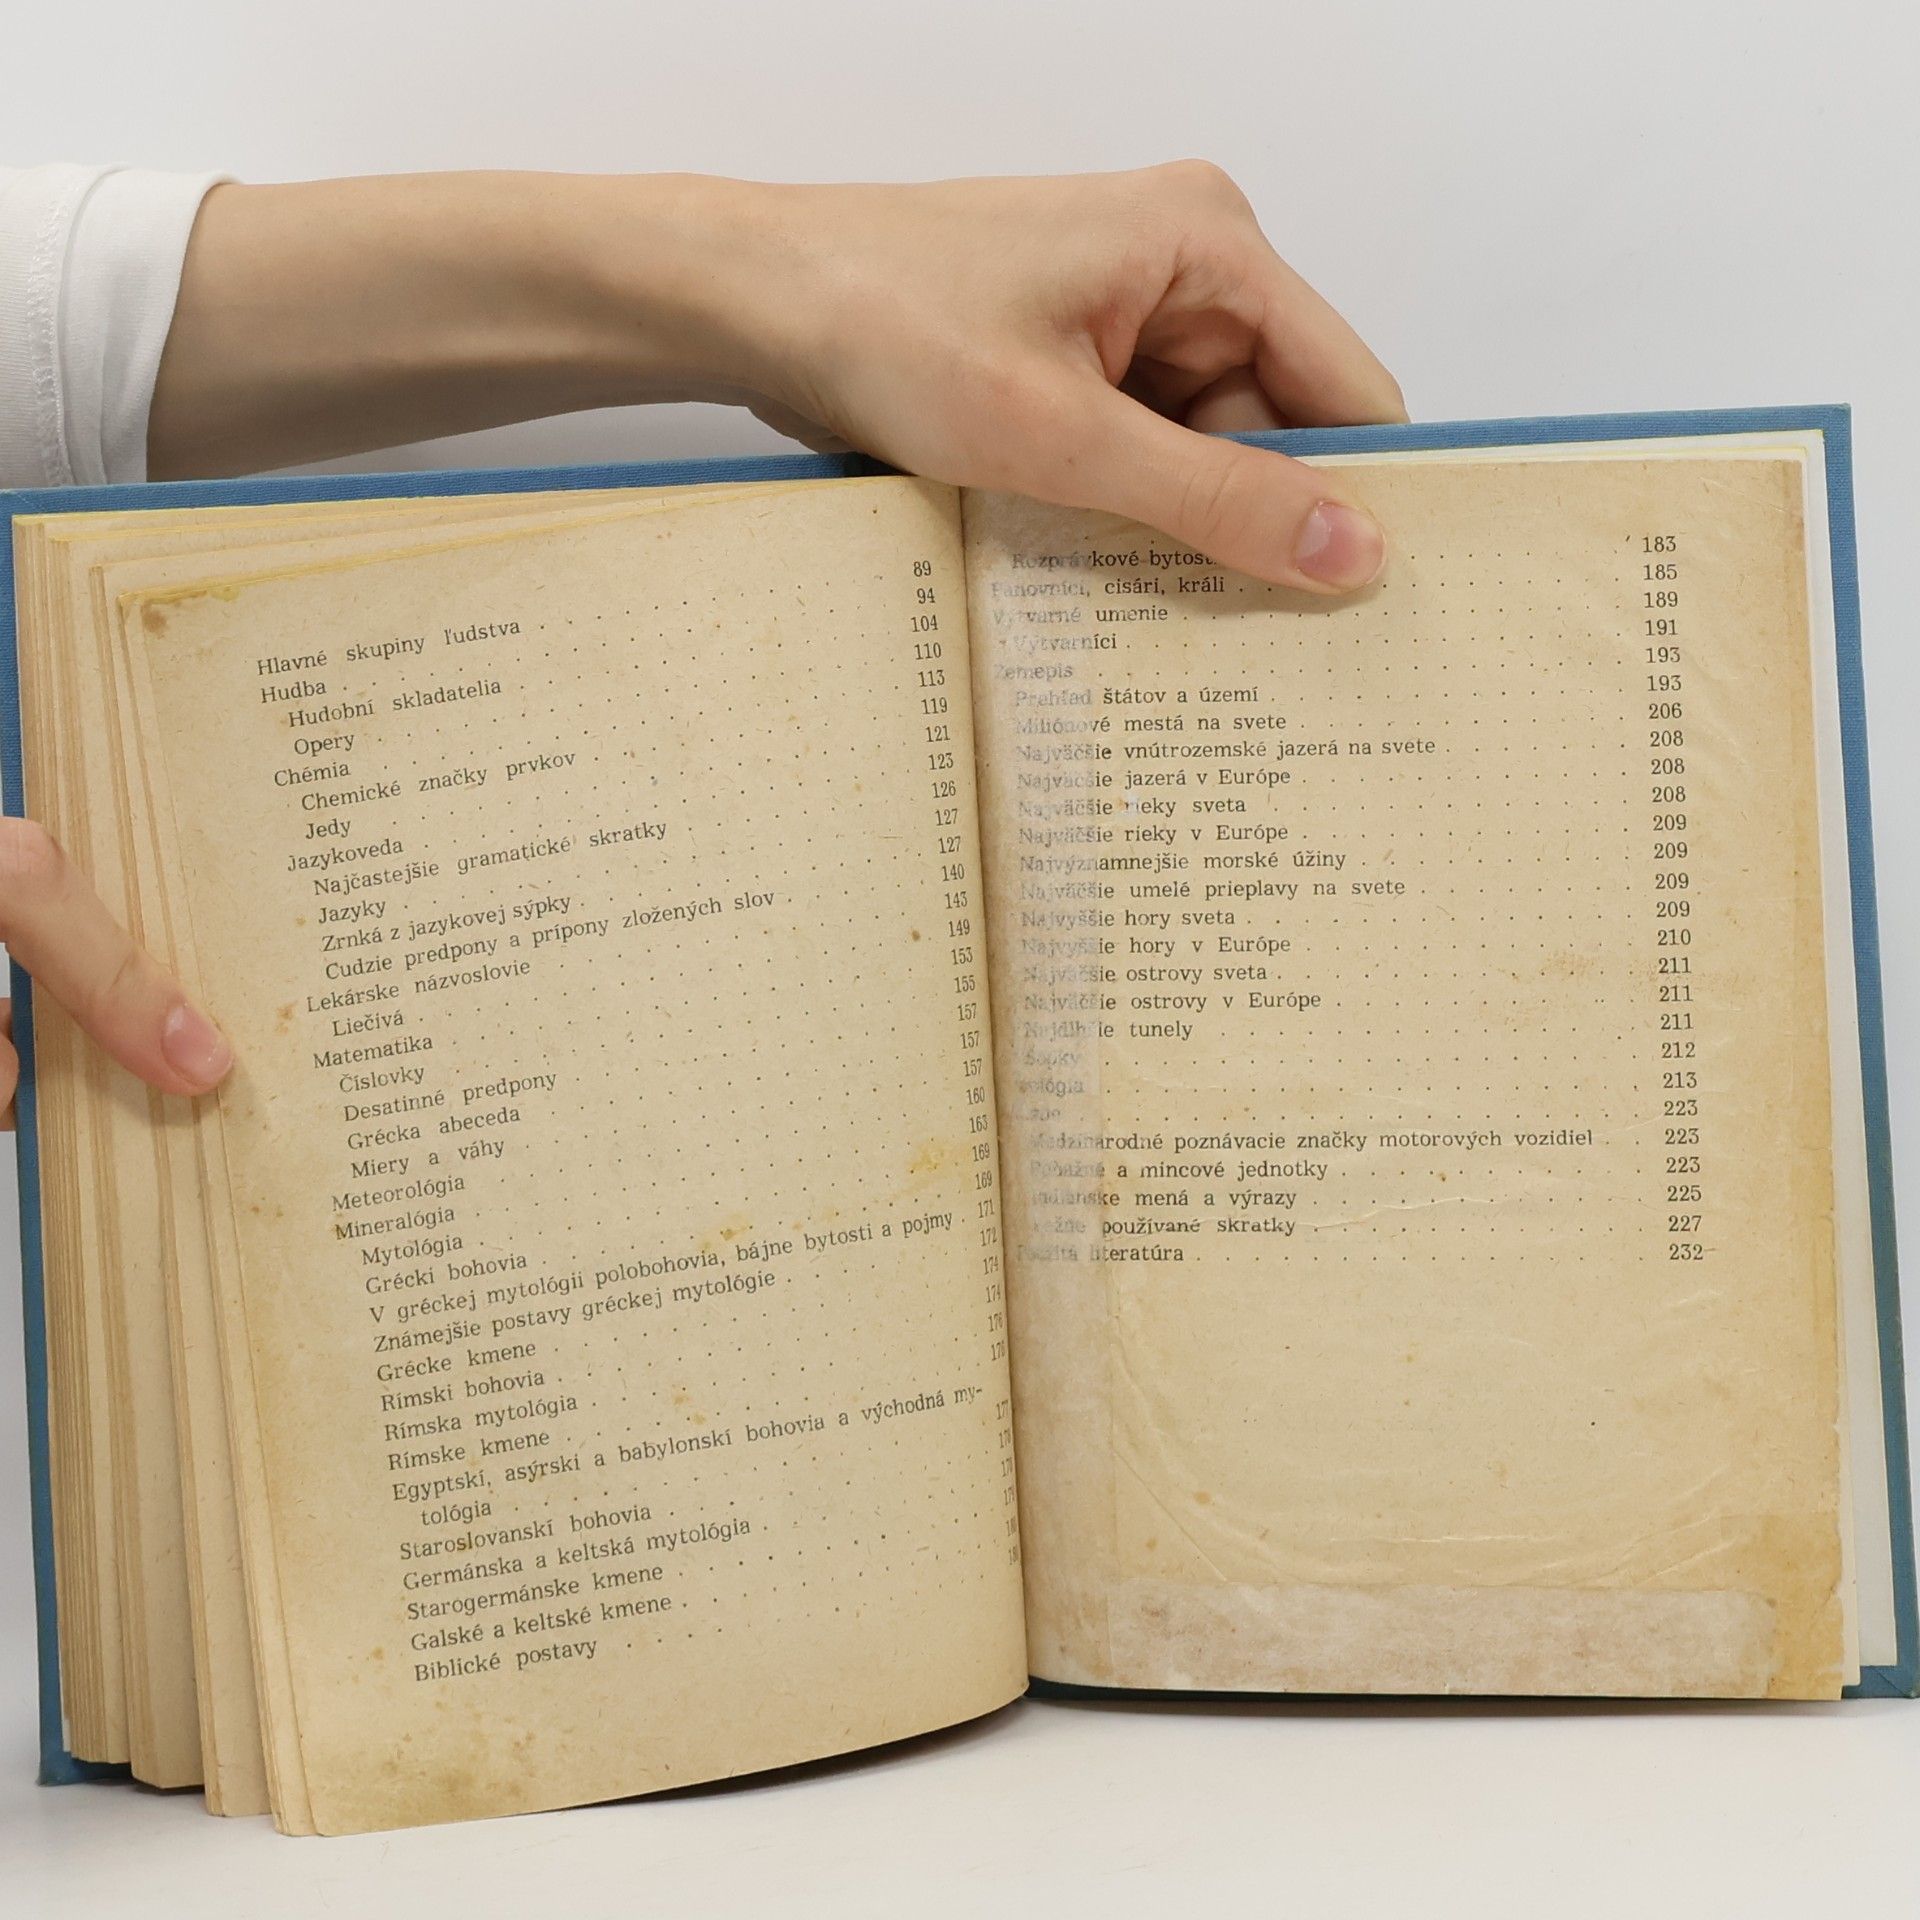 Hlavné skupiny ľudstva . . . 89
Hudba . . . 94
Hudobní skladatelia . . . 104
Opery . . . 110
Chémia . . . 113
Chemické značky prvkov . . . 119
Jedy . . . 121
Jazykoveda . . . 123
Najčastejšie gramatické skratky . . . 126
Jazyky . . . 127
Zrnká z jazykovej sýpky . . . 127
Cudzie predpony a prípony zložených slov . . . 140
Lekárske názvoslovie . . . 143
Liečivá . . . 149
Matematika . . . 153
Číslovky . . . 155
Desatinné predpony . . . 157
Grécka abeceda . . . 157
Miery a váhy . . . 157
Meteorológia . . . 160
Mineralógia . . . 163
Mytológia . . . 169
Grécki bohovia . . . 169
V gréckej mytológii polobohovia, bájne bytosti a pojmy . 171
Známejšie postavy gréckej mytológie . . . 172
Grécke kmene . . . 174
Rímski bohovia . . . 174
Rímska mytológia . . . 176
Rímske kmene . . . 176
Egyptskí, asýrski a babylonskí bohovia a východná my-
tológia . . . 177
Staroslovanskí bohovia . . .
Germánska a keltská mytológia . . .
Starogermánske kmene . . .
Galské a keltské kmene . . .
Biblické postavy . . .
Rozprávkové . . . 183
Panovníci, cisári, králi . . . 185
Výtvarné umenie . . . 189
Výtvarníci . . . 191
Zemepis . . . 193
Prehľad štátov a území . . . 193
Miliónové mestá na svete . . . 206
Najväčšie vnútrozemské jazerá na svete . . . 208
Najväčšie jazerá v Európe . . . 208
Najväčšie rieky sveta . . . 208
Najväčšie rieky v Európe . . . 209
Najvýznamnejšie morské úžiny . . . 209
Najväčšie umelé prieplavy na svete . . . 209
Najvyššie hory sveta . . . 209
Najvyššie hory v Európe . . . 210
Najväčšie ostrovy sveta . . . 211
Najväčšie ostrovy v Európe . . . 211
Najdlhšie tunely . . . 211
Sopky . . . 212
. . . 213
. . . 223
Medzinárodné poznávacie značky motorových vozidiel . . 223
Peňažné a mincové jednotky . . . 223
Indiánske mená a výrazy . . . 225
Bežne používané skratky . . . 227
Použitá literatúra . . . 232